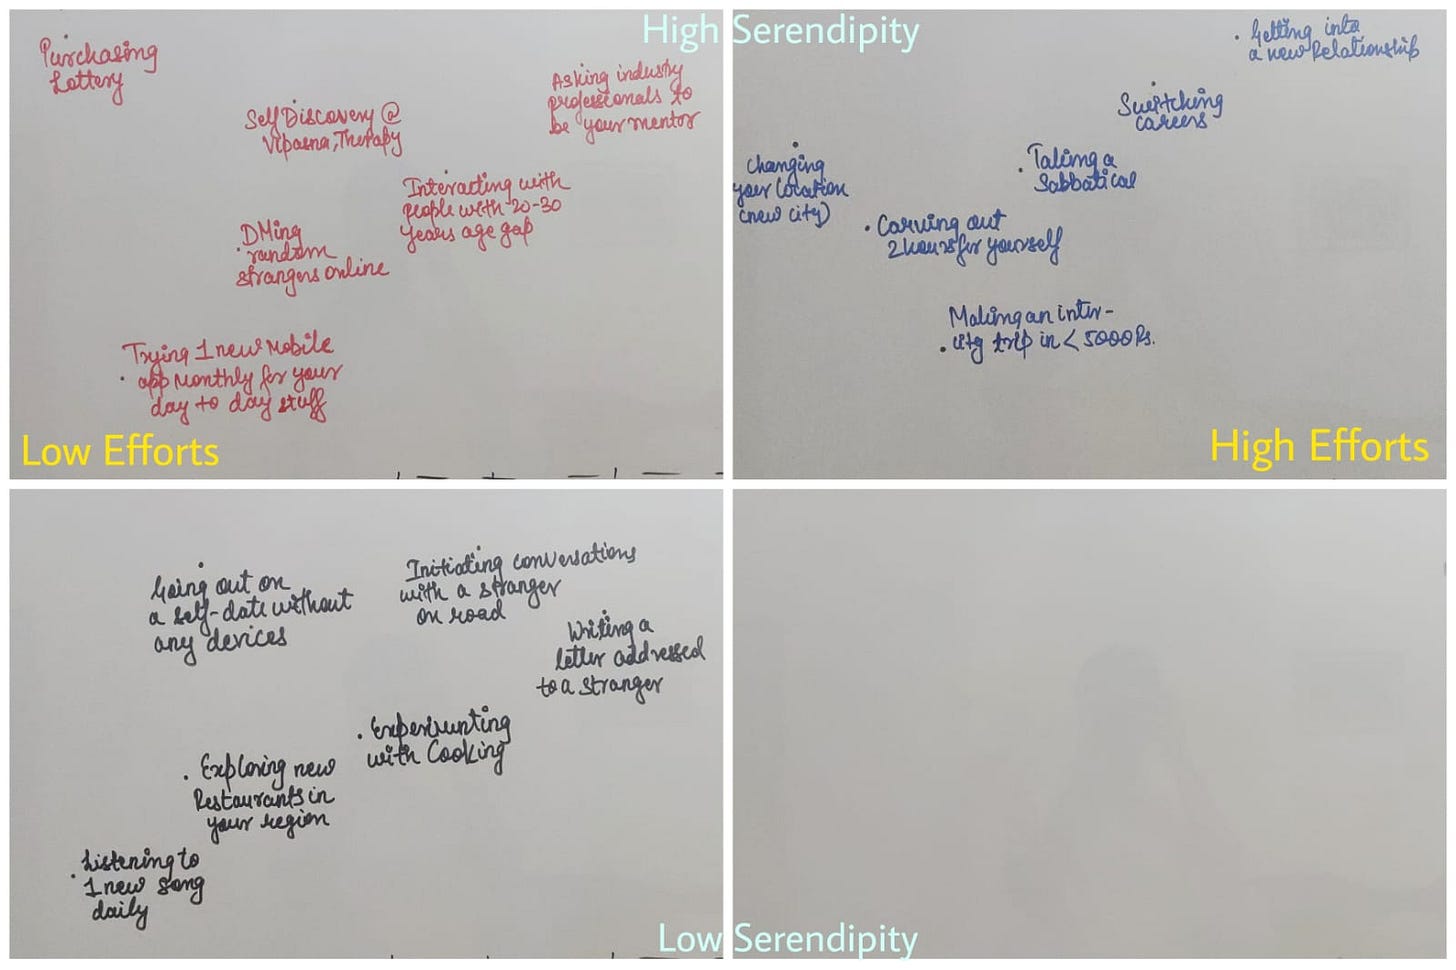 High Serendipity
Purchasing
Lottery
Self Discovery @
Vipasna, Therapy
Asking industry
professionals to
be your mentor
Interacting with
people with 20-30
years age gap
DMing
random
strangers online
Trying 1 new Mobile
app Monthly for your
day to day stuff
Low Efforts
Getting into
a new Relationship
Switching
careers
Taking a
Sabbatical
Changing
your location
(new city)
Carving out
2 hours for yourself
Making an inter-
city trip in < 5000 Rs.
High Efforts
Going out on
a self-date without
any devices
Initiating conversations
with a stranger
on road
Writing a
letter addressed
to a stranger
Experimenting
with Cooking
Exploring new
Restaurants in
your region
Listening to
1 new song
daily
Low Serendipity